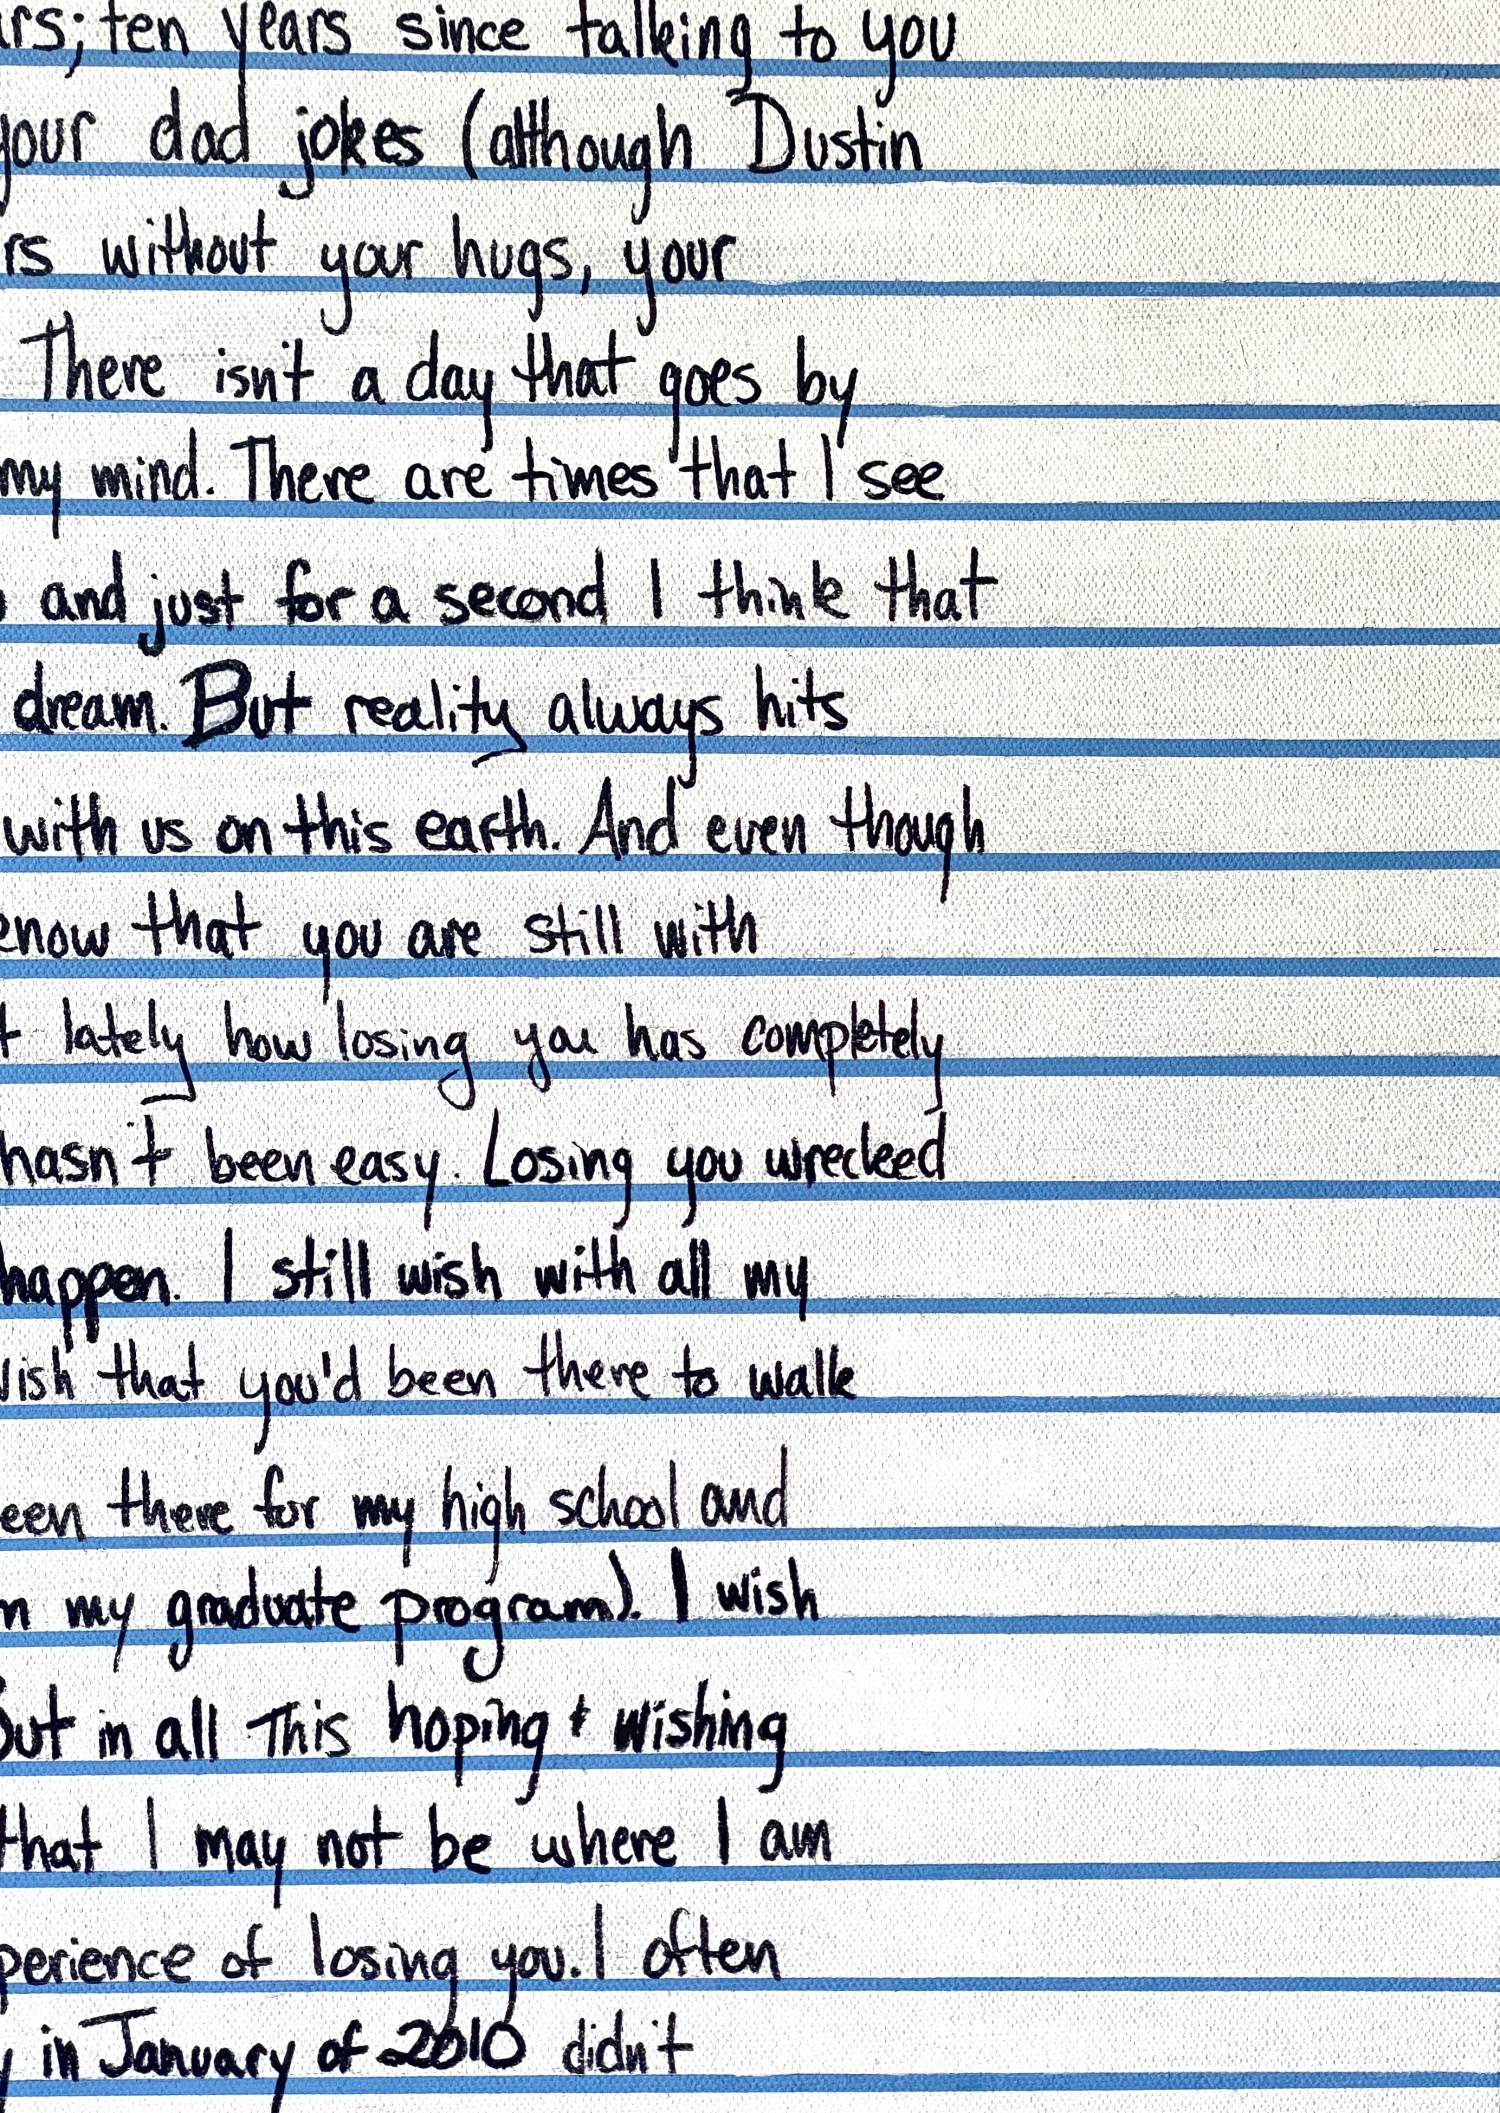 rs; ten years since talking to you
your dad jokes (although Dustin
rs without your hugs, your
There isn't a day that goes by
my mind. There are times that I see
and just for a second I think that
dream. But reality always hits
with us on this earth. And even though
know that you are still with
lately how losing you has completely
hasn't been easy. Losing you wrecked
happen. I still wish with all my
ish that you'd been there to walk
een there for my high school and
n my graduate program). I wish
But in all this hoping & wishing
that I may not be where I am
perience of losing you. I often
in January of 2010 didn't